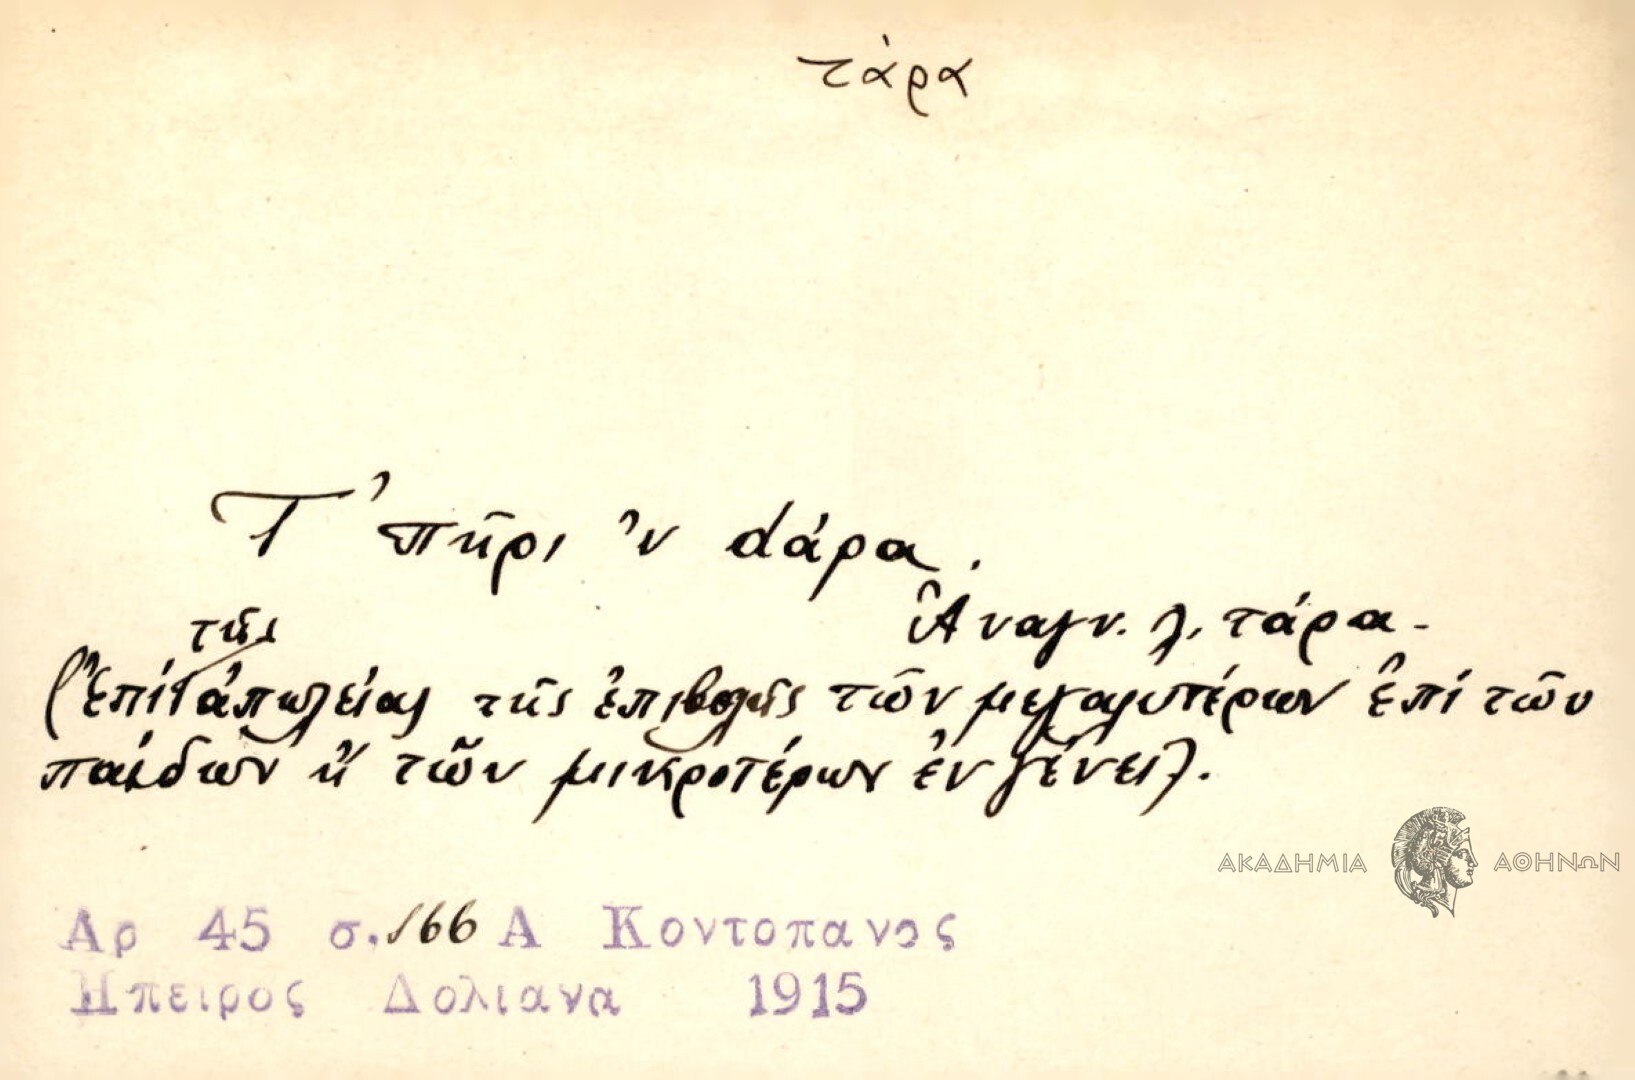 τάρα
Τ' πῆρι 'ν dάρα.
Ἀναγν. λ. τάρα -
τῆς
(Ἐπὶ τ ἀπωλείας τῆς ἐπιβολῆς τῶν μεγαλυτέρων ἐπὶ τῶν
παίδων ἢ τῶν μικροτέρων ἐν γένει).
ΑΚΑΔΗΜΙΑ ΑΘΗΝΩΝ
Αρ 45 σ. 166 Α Κοντοπανος
Ηπειρος Δολιανα 1915